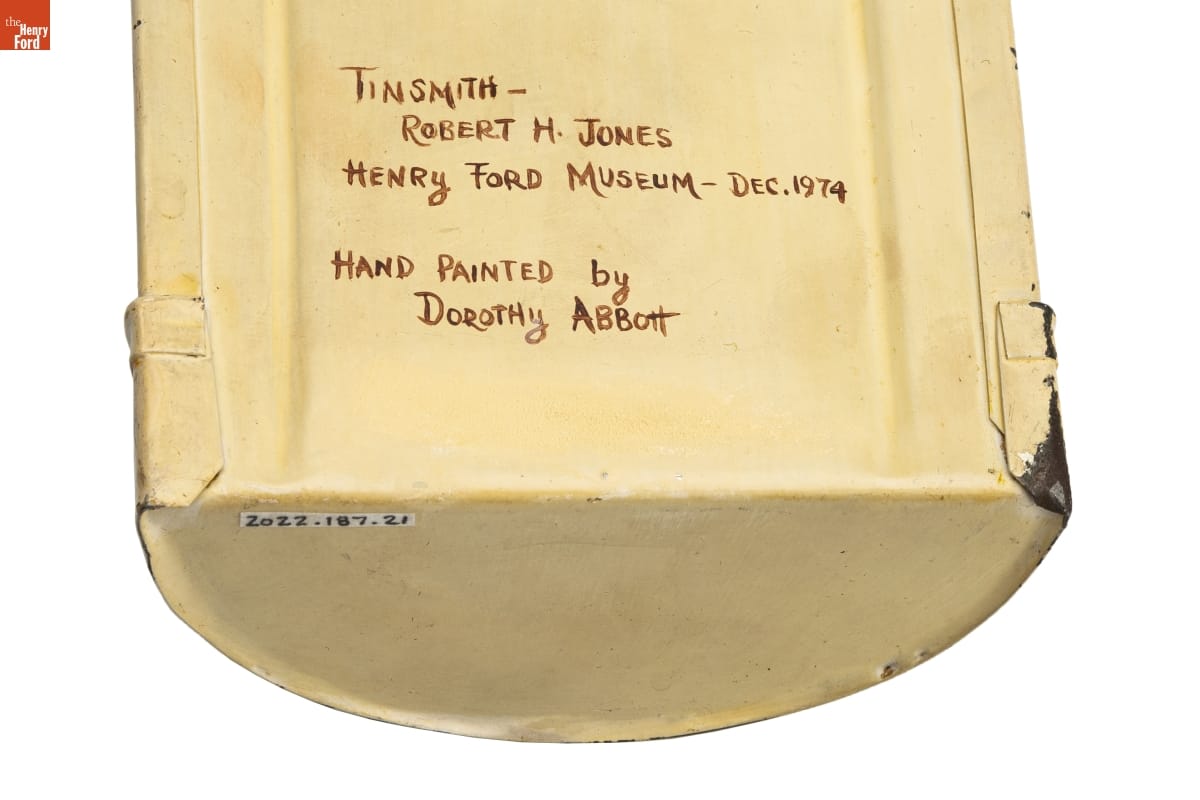 the
Henry
Ford
TINSMITH –
ROBERT H. JONES
HENRy FORD MUSEUM – DEC. 1974
HAND PAINTED by
DOROTHy ABBOtt
2022.187.21